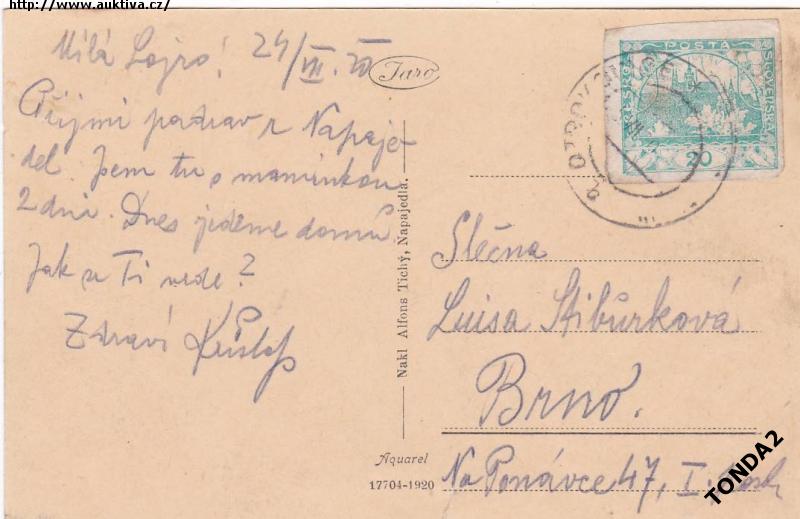 http://www.auktiva.cz/
Milá Lojzo! 24/VII. 20
Přijmi pozdrav z Napaje-
del. Jsem tu s maminkou
2 dni. Dnes jedeme domů.
Jak se Ti vede?
Zdraví
Jaro
Nakl Alfons Tichý, Napajedla.
POŠTA
ČESKO
SLOVENSKÁ
20
Slečna
Luisa Stibůrková
Brno.
Na Ponávce 47, I.
Aquarel
17704-1920
TONDA2